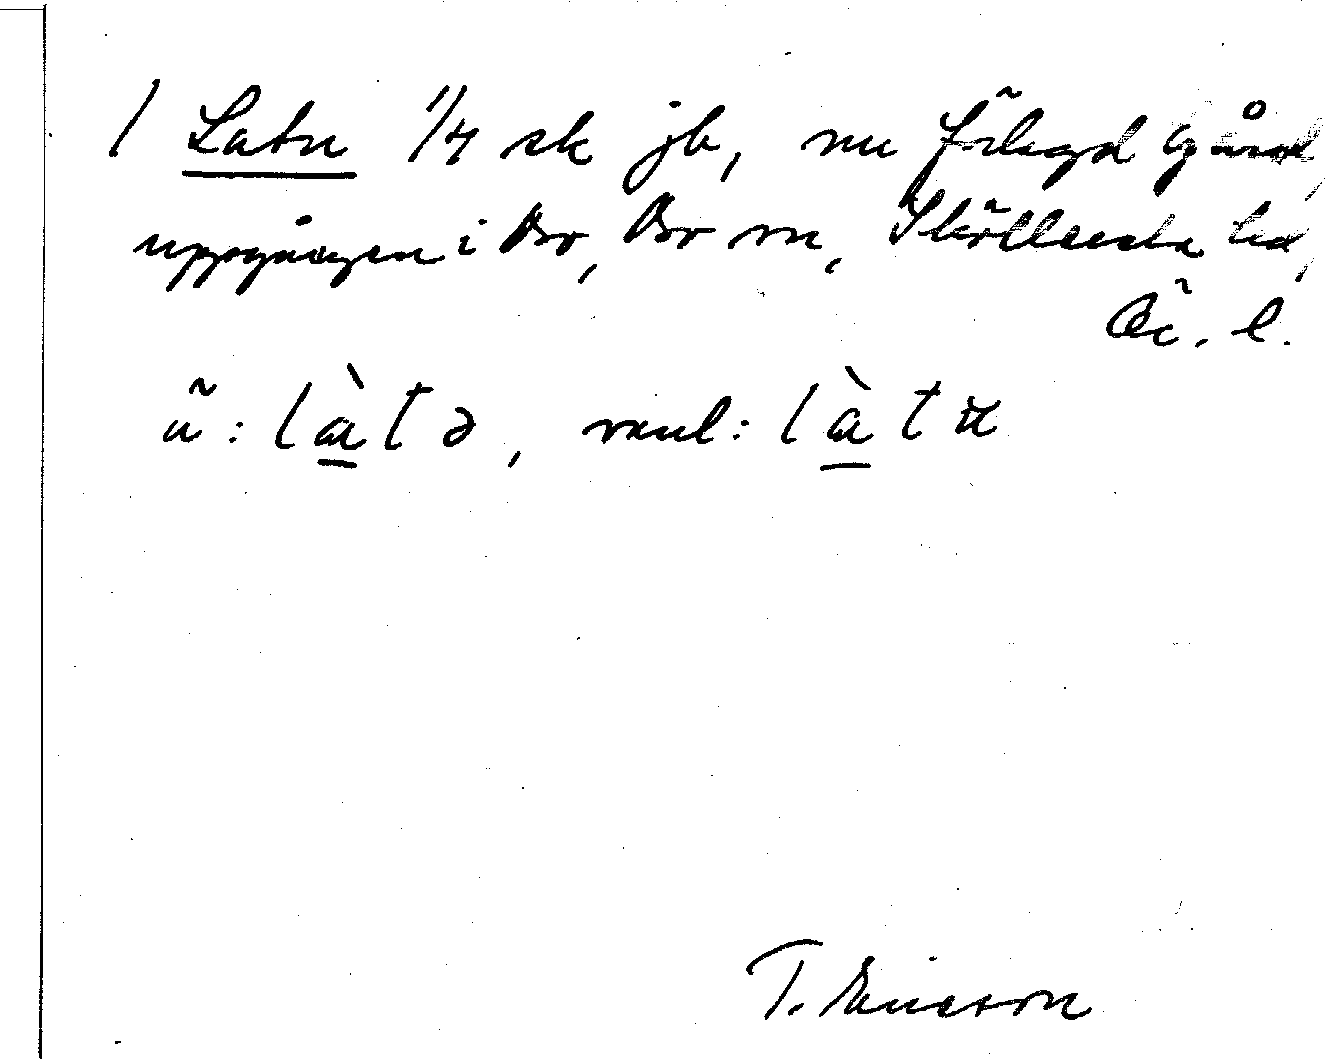 / Latu 1/4 sk jb, nu förlagd gård,
uppgången i Bo, Bo sn, Sköllersta hd,
Ör. l.
u: làtə, vanl: làtu
T. Ericsson